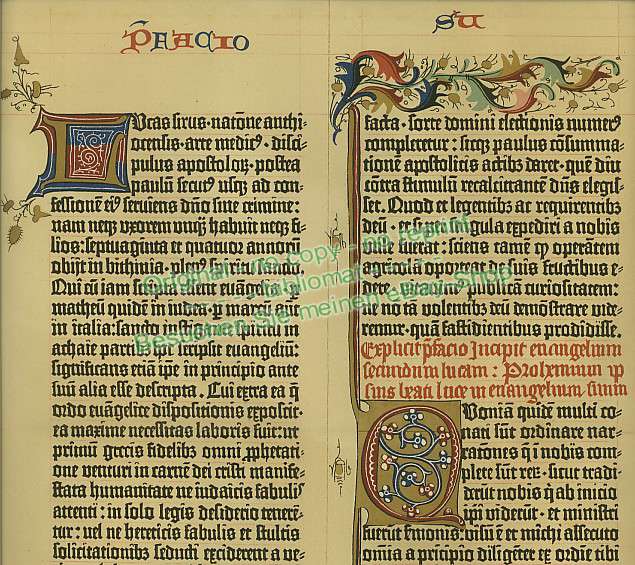 P̄FACIO
SU
LVcas sirus·natōne anthi-
ocensis·arte medicꝰ·disci-
pulus apostoloꝝ·postea
paulū secutꝰ usqꝫ ad con-
fessionē eiꝰ seruiens dn̄o sine crimine:
nam neqꝫ vxorem unqꝫ habuit neqꝫ fi-
lios: septuaginta et quatuor annorū
obijt in bithinia·plenꝰ spiritu sancto.
Qui cū iam scripta essent euāgelia·ꝑ
matheū quidē in iudea·ꝑ marcū aūt
in italia: sancto instigante spiritu in
achaie partibꝫ hoc scripsit euangeliū:
significans etiā ipe in principio ante
suū alia esse descripta. Cui extra ea q̄
ordo euāgelice dispositionis exposcit·
ea maxime necessitas laboris fuit: ut
primū grecis fidelibꝫ omni ꝓphetati-
one venturi in carnē dei cristi manife-
stata humanitate ne iudaicis fabulis
attenti: in solo legis desiderio tenerē-
tur: vel ne hereticis fabulis et stultis
solicitationibꝫ seducti exciderent a ve-
facta·sorte domini electionis numerꝰ
compleretur: sicqꝫ paulus cōsumma-
tionē apostolicis actibꝫ daret·quē diu
cōtra stimulū recalcitrantē dn̄s elegis-
set. Quod et legentibꝫ ac requirentibꝫ
deū·etsi per singula expediri a nobis
utile fuerat: sciens tamē ꝙ operātem
agricolā oporteat de suis fructibus e-
dere·vitauimꝰ publicā curiositatem:
ne nō tā volentibꝫ deū demōstrare vide-
remur·quā fastidientibus prodidisse.
Explicit p̄facio Incipit euangelium
secundum lucam: Prohemium ip-
sius beati luce in euangelium suum
QVoniā quidē multi co-
nati sūt ordinare nar-
rationes q̄ i nobis com-
plete sūt reꝝ·sicut tradi-
derūt nobis q̄ ab inicio
ip̄i viderūt·et ministri
fuerūt ẜmonis: visū ē et michi assecuto
omīa a prīcipio diligēter ex ordīe tibi
Original foto copy - no reprint
Besuchen Sie meinen eBay Shop